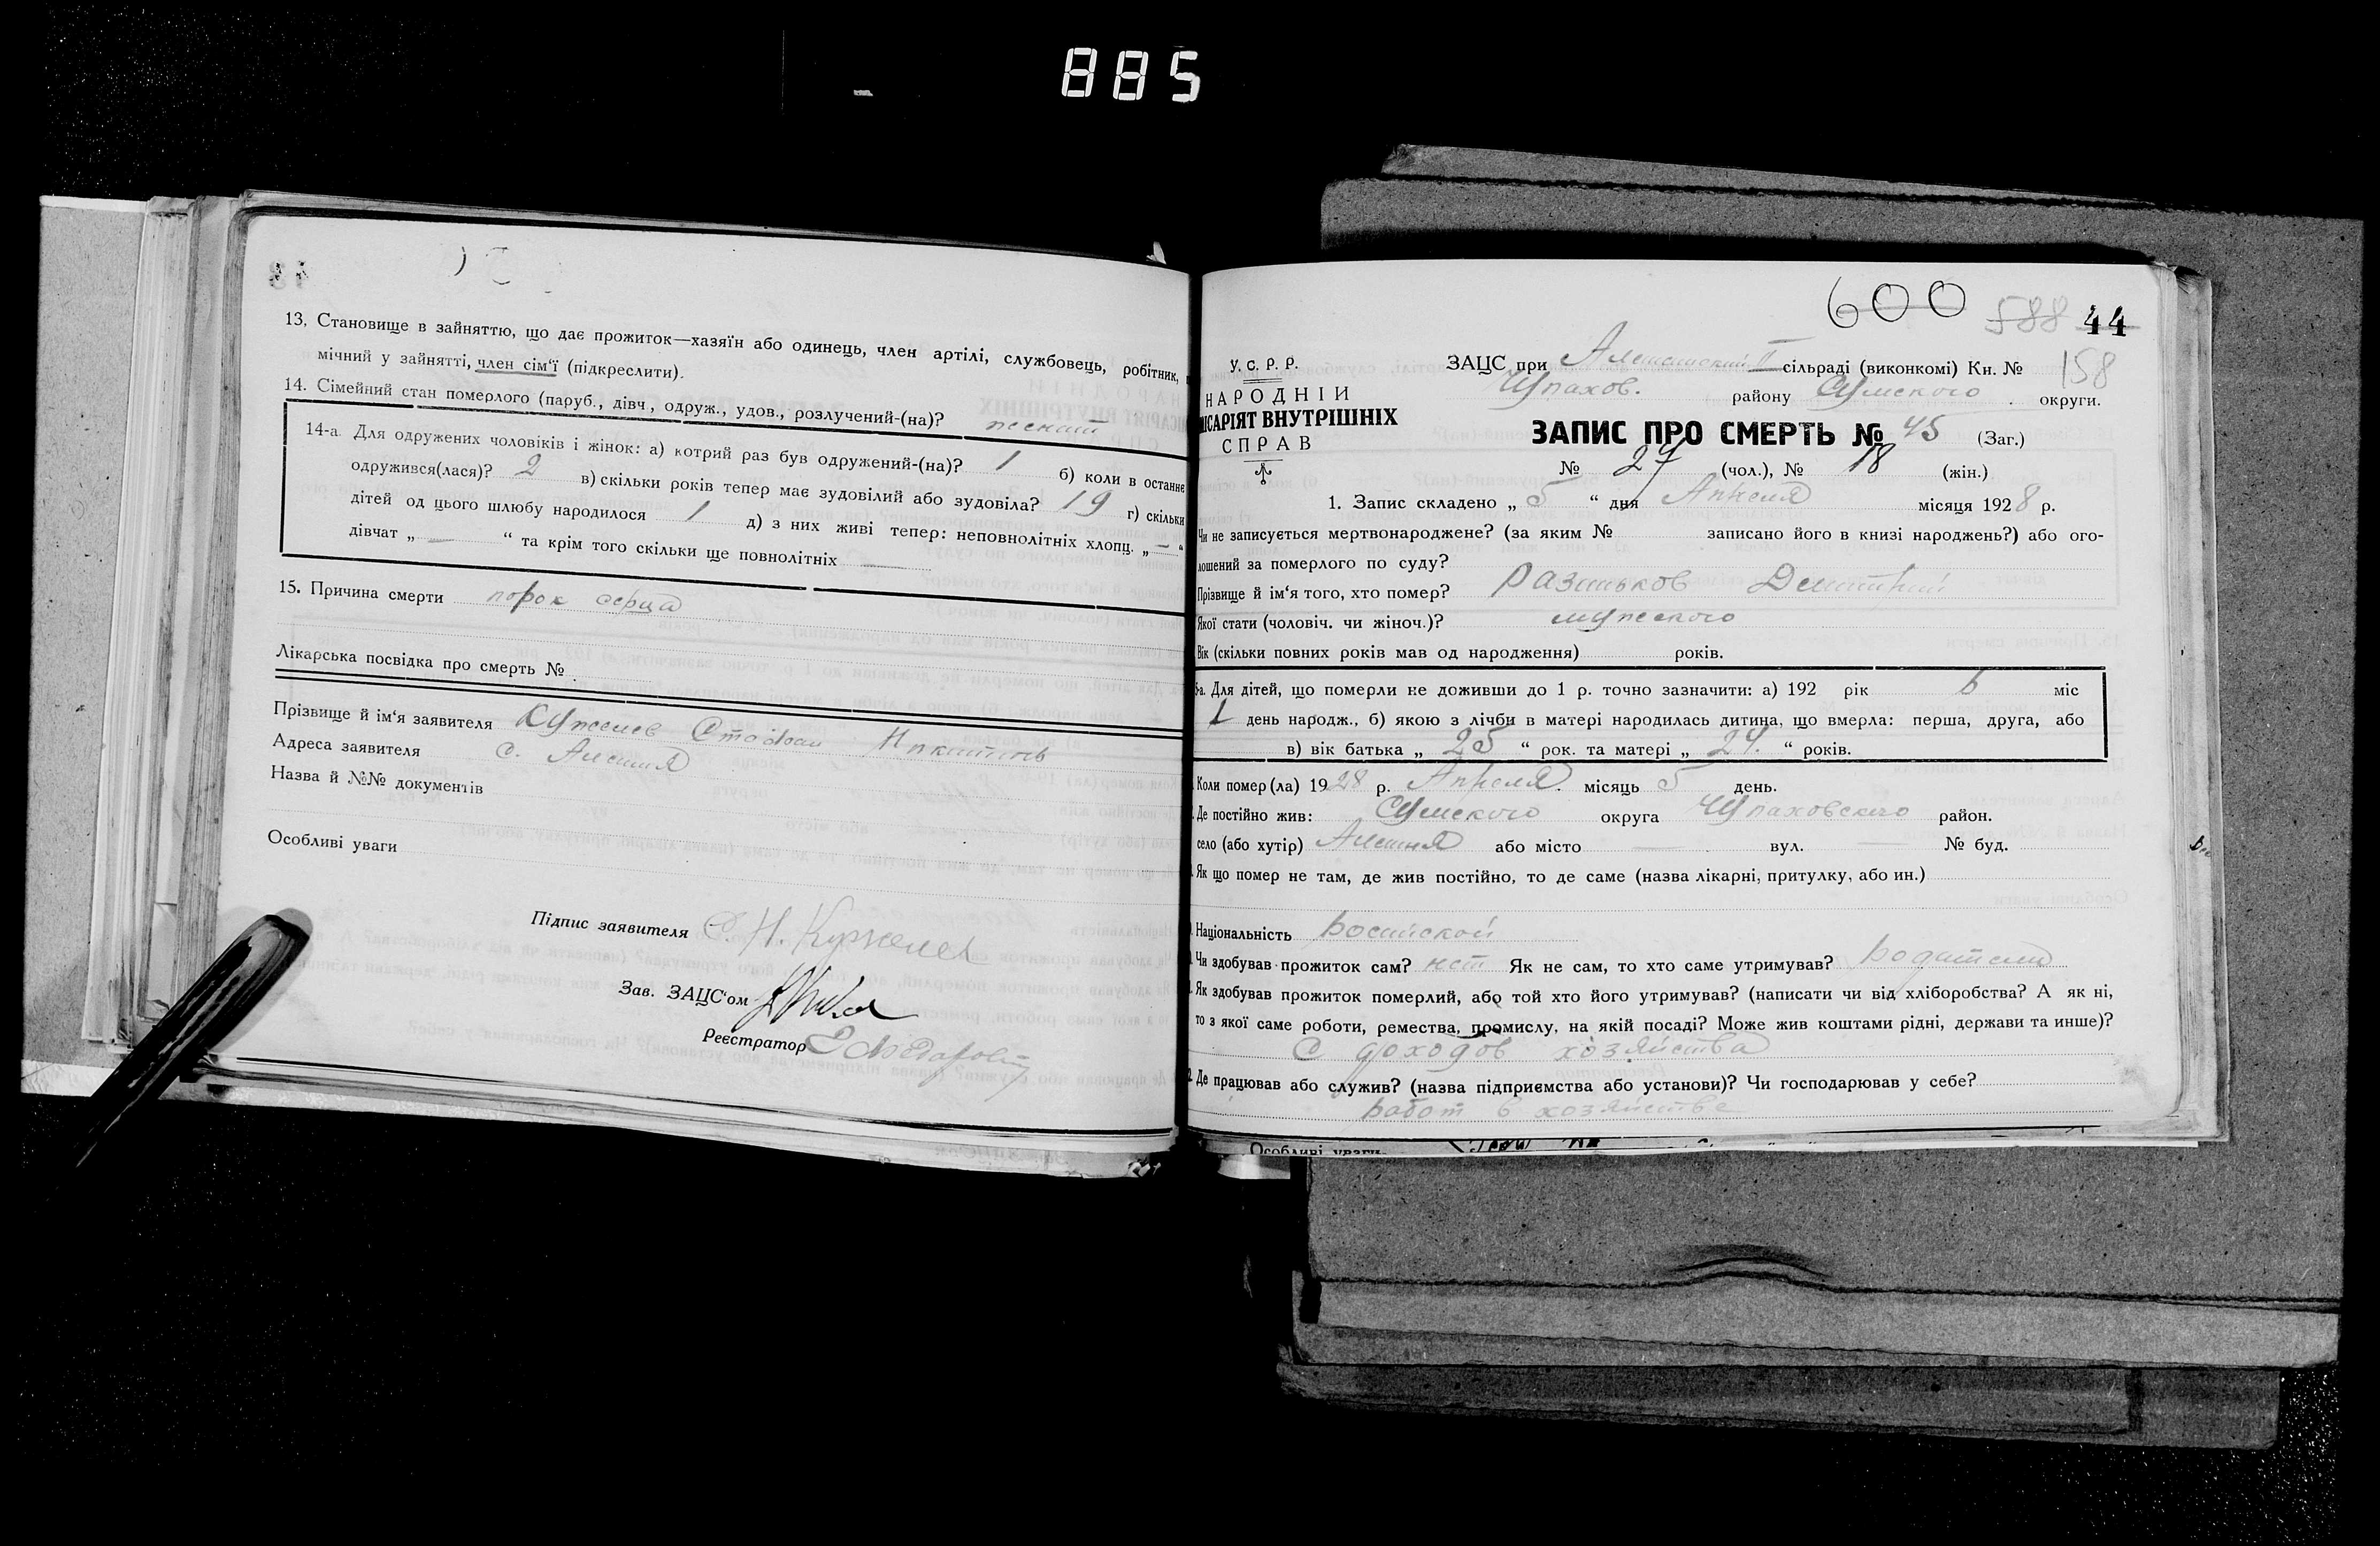 885
13. Становище в зайняттю, що дає прожиток—хазяїн або одинець, член артілі, службовець, робітник,
мічний у зайнятті, член сім‘ї (підкреслити).
14. Сімейний стан померлого (паруб., дівч., одруж., удов., розлучений-(на)?
14-а. Для одружених чоловіків і жінок: а) котрий раз був одружений-(на)? 1 б) коли в останнє
одружився(лася)? 2 в) скільки років тепер має зудовілий або зудовіла? 19 г) скільки
дітей од цього шлюбу народилося 1 д) з них живі тепер: неповнолітніх хлопц. „—“
дівчат „ — “ та крім того скільки ще повнолітніх —
15. Причина смерти порок серца
Лікарська посвідка про смерть №
Прізвище й ім‘я заявителя
Адреса заявителя с. Алешня
Назва й №№ документів
Особливі уваги
Підпис заявителя С. Н.
Зав. ЗАЦС‘ом
Реєстратор
600 588 44
У. С. Р. Р.
НАРОДНІЙ
ІСАРІЯТ ВНУТРІШНІХ
СПРАВ
ЗАЦС при II сільраді (виконкомі) Кн. № 158
Чупахов. району Сумского округи.
ЗАПИС ПРО СМЕРТЬ № 45 (Заг.)
№ 27 (чол.), № 18 (жін.)
1. Запис складено „ 5 “ дня Апреля місяця 1928 р.
Чи не записується мертвонароджене? (за яким № записано його в книзі народжень?) або ого-
лошений за померлого по суду?
Прізвище й ім‘я того, хто помер? Разиньков Дмитрий
Якої стати (чоловіч. чи жіноч.)? мужского
Вік (скільки повних років мав од народження) років.
6-а. Для дітей, що померли не доживши до 1 р. точно зазначити: а) 192 рік 6 міс
1 день народж., б) якою з лічби в матері народилась дитина, що вмерла: перша, друга, або
в) вік батька „ 25 “ рок. та матері „ 24. “ років.
Коли помер(ла) 1928 р. Апреля місяць 5 день.
Де постійно жив: Сумского округа Чупаховского район.
село (або хутір) Алешня або місто — вул. — № буд.
Як що помер не там, де жив постійно, то де саме (назва лікарні, притулку, або ин.)
Національність
Чи здобував прожиток сам? нет Як не сам, то хто саме утримував? Родители
Як здобував прожиток померлий, або той хто його утримував? (написати чи від хліборобства? А як ні,
то з якої саме роботи, ремества, промислу, на якій посаді? Може жив коштами рідні, держави та инше)?
С доходов хозяйства
Де працював або служив? (назва підприємства або установи)? Чи господарював у себе?
работ в хозяйстве
Особливі уваги